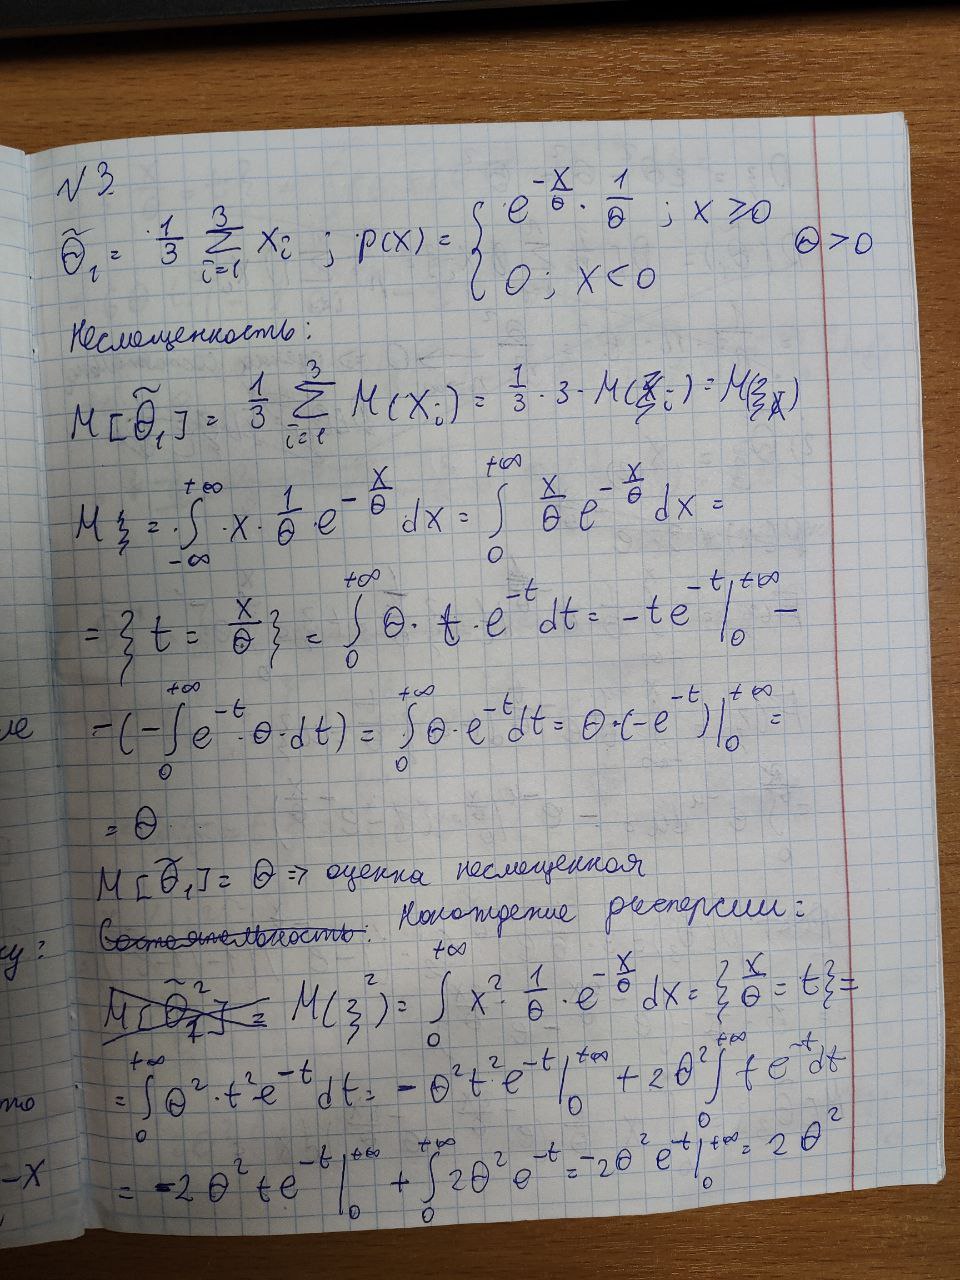 √3.
θ̃₁ = 1/3 ∑_{i=1}^{3} xᵢ ; p(x) = { e^{-x/θ} · 1/θ ; x ≥ 0
0 ; x < 0
θ > 0
Несмещенность:
M[θ̃₁] = 1/3 ∑_{i=1}^{3} M(xᵢ) = 1/3 · 3 · M(ξᵢ) = M(ξ)
Mξ = ∫_{-∞}^{+∞} x · 1/θ · e^{-x/θ} dx = ∫_0^{+∞} x/θ e^{-x/θ} dx =
= { t = x/θ } = ∫_0^{+∞} θ · t · e^{-t} dt = -te^{-t} |_0^{+∞} -
- (-∫_0^{+∞} e^{-t} · θ · dt) = ∫_0^{+∞} θ · e^{-t} dt = θ · (-e^{-t}) |_0^{+∞} =
= θ
M[θ̃₁] = θ ⇒ оценка несмещенная
Состоятельность: Нахождение дисперсии:
M[θ̃₁²] = M(ξ²) = ∫_0^{+∞} x² · 1/θ · e^{-x/θ} dx = { x/θ = t } =
= ∫_0^{+∞} θ² · t² e^{-t} dt = -θ² t² e^{-t} |_0^{+∞} + 2θ² ∫_0^{+∞} t e^{-t} dt
= -2θ² t e^{-t} |_0^{+∞} + ∫_0^{+∞} 2θ² e^{-t} = -2θ² e^{-t} |_0^{+∞} = 2θ²
-x